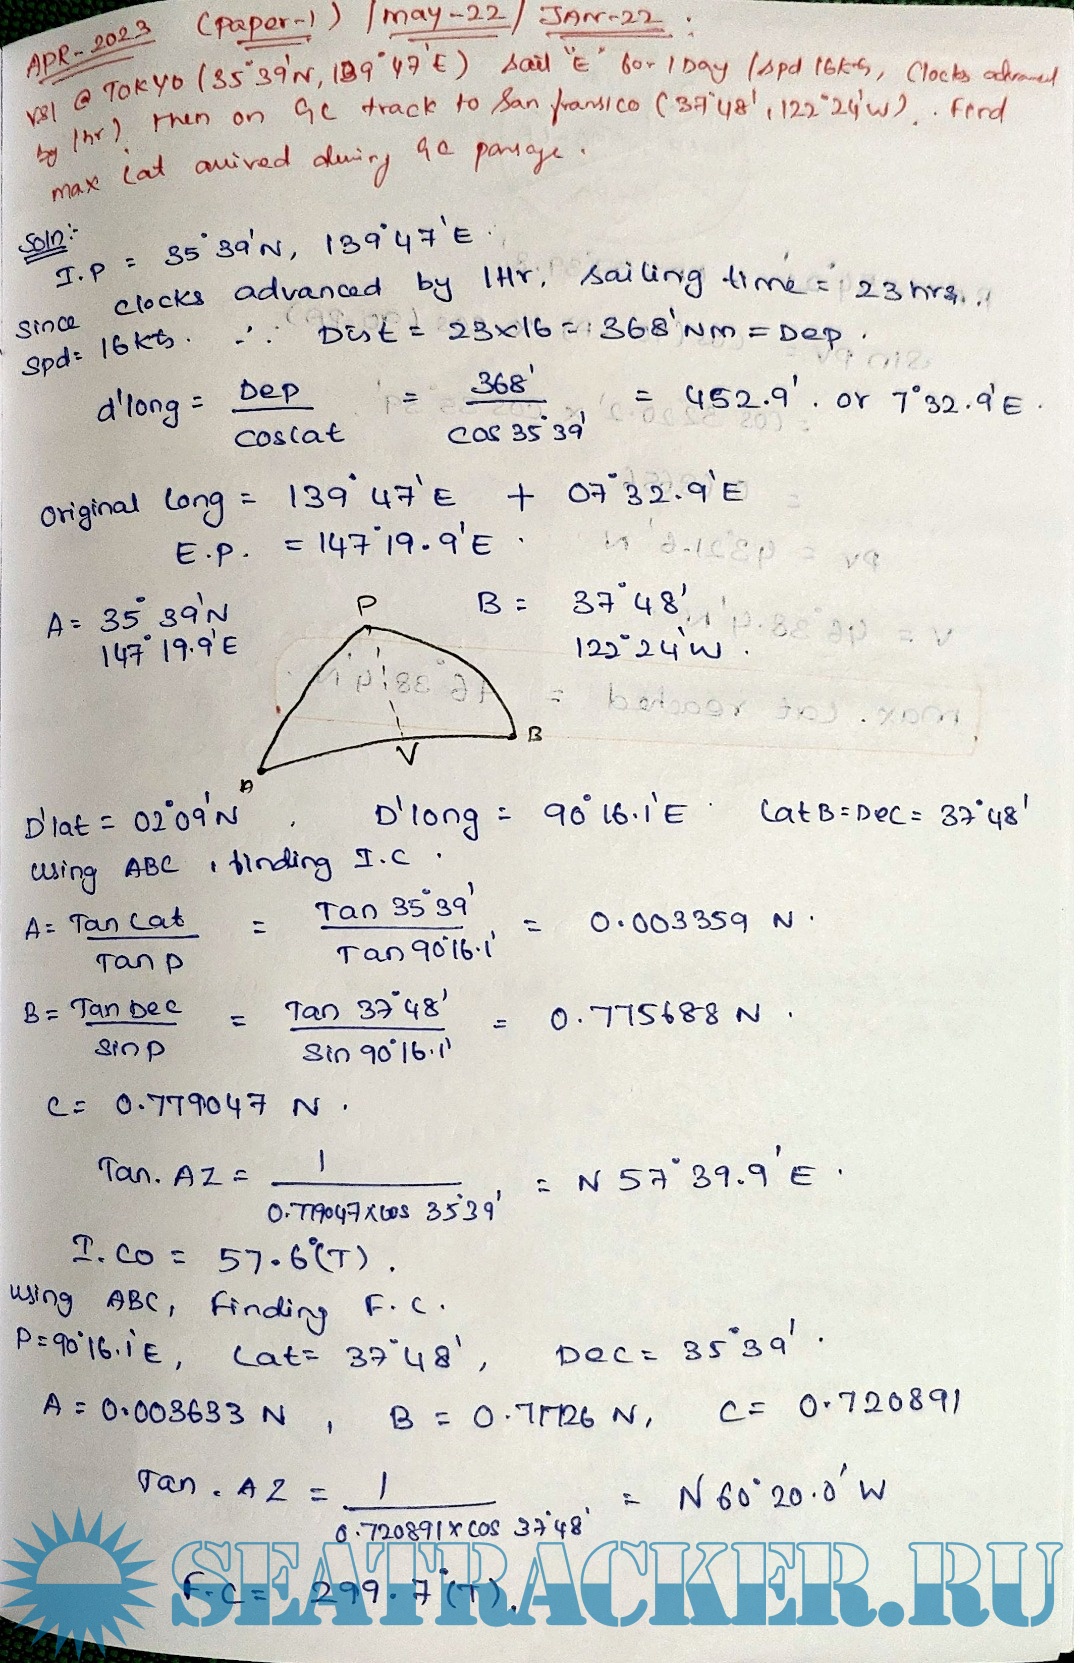 APR-2023 (Paper-1) / may-22 / JAN-22 :
vsl @ TOKYO (35°39'N, 139°47'E) sail "E" for 1 Day (spd 16kts, Clocks advanced
by 1hr). Then on GC track to San fransico (37°48', 122°24'W). Find
max Lat arrived during GC passage.
Soln:-
I.P = 35°39'N, 139°47'E.
Since clocks advanced by 1Hr, sailing time = 23hrs.
Spd = 16kts. ∴ Dist = 23x16 = 368'Nm = Dep.
d'long = Dep / cos lat = 368' / cos 35°39' = 452.9'. or 7°32.9'E.
Original Long = 139°47'E + 07°32.9'E
E.P. = 147°19.9'E.
A = 35°39'N
147°19.9'E
P
B = 37°48'
122°24'W.
A
V
B
D'lat = 02°09'N, D'long = 90°16.1'E Lat B = Dec = 37°48'
using ABC, finding I.C.
A = Tan Lat / Tan P = Tan 35°39' / Tan 90°16.1' = 0.003359 N.
B = Tan Dec / Sin P = Tan 37°48' / Sin 90°16.1' = 0.775688 N.
C = 0.779047 N.
Tan. AZ = 1 / 0.779047xcos 35°39' = N 57°39.9'E.
I.CO = 57.6°(T).
using ABC, Finding F.C.
P = 90°16.1'E, Lat = 37°48', Dec = 35°39'.
A = 0.003633 N, B = 0.71726 N, C = 0.720891
Tan. AZ = 1 / 0.720891xcos 37°48' = N 60°20.0'W
F.C = 299.7°(T).
SEATRACKER.RU